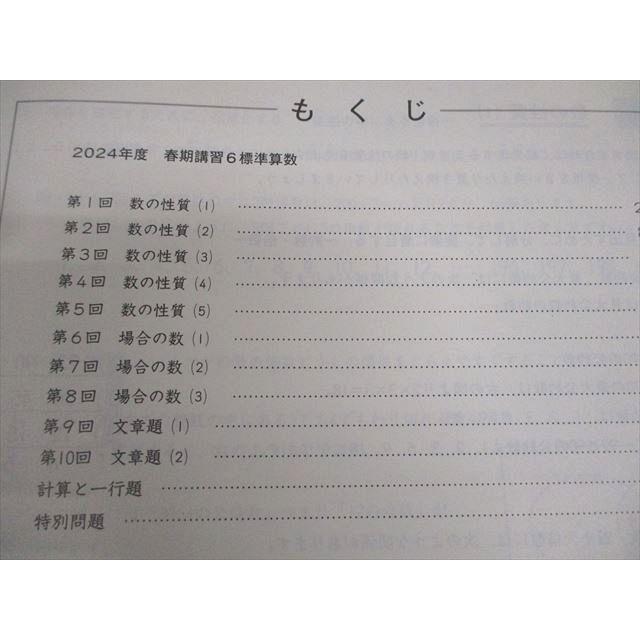 もくじ
2024年度 春期講習6標準算数
第1回 数の性質(1) 2
第2回 数の性質(2)
第3回 数の性質(3)
第4回 数の性質(4)
第5回 数の性質(5)
第6回 場合の数(1)
第7回 場合の数(2)
第8回 場合の数(3)
第9回 文章題(1)
第10回 文章題(2)
計算と一行題
特別問題